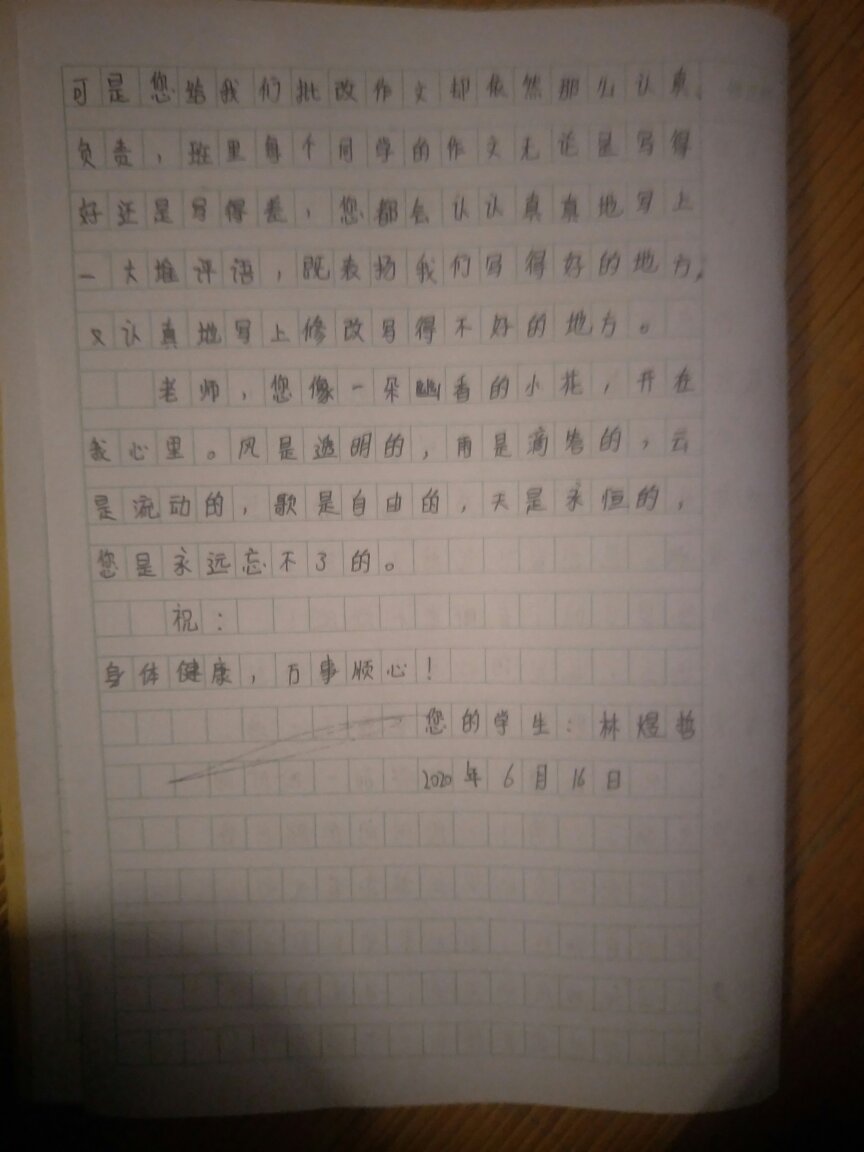 可是您给我们批改作文却依然那么认真
负责，班里每个同学的作文无论是写得
好还是写得差，您都会认认真真地写上
一大堆评语，既表扬我们写得好的地方，
又认真地写上修改写得不好的地方。
老师，您像一朵幽香的小花，开在
我心里。风是透明的，雨是滴答的，云
是流动的，歌是自由的，天是永恒的，
您是永远忘不了的。
祝：
身体健康，万事顺心！
您的学生：林煜哲
2020年6月16日